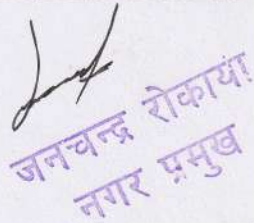 जनचन्द्र रोकाया
नगर प्रमुख